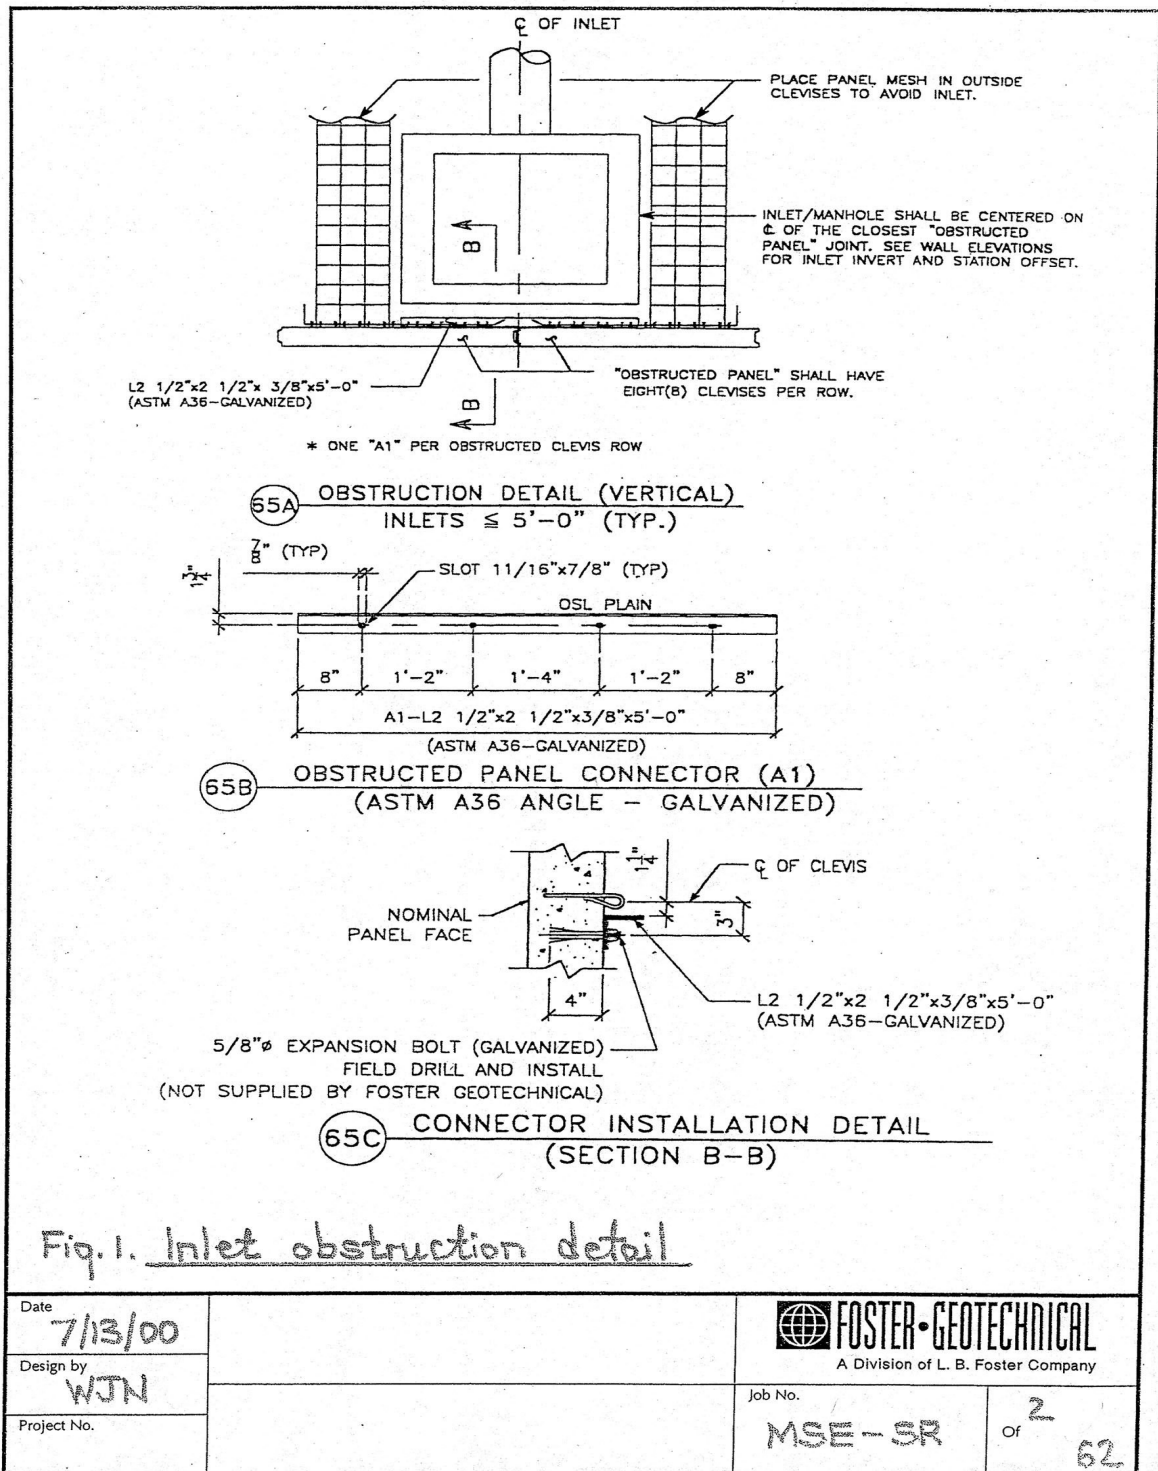 ℄ OF INLET
PLACE PANEL MESH IN OUTSIDE
CLEVISES TO AVOID INLET.
INLET/MANHOLE SHALL BE CENTERED ON
℄ OF THE CLOSEST "OBSTRUCTED
PANEL" JOINT. SEE WALL ELEVATIONS
FOR INLET INVERT AND STATION OFFSET.
B
L2 1/2"x2 1/2"x 3/8"x5'-0"
(ASTM A36-GALVANIZED)
"OBSTRUCTED PANEL" SHALL HAVE
EIGHT(8) CLEVISES PER ROW.
B
* ONE "A1" PER OBSTRUCTED CLEVIS ROW
65A
OBSTRUCTION DETAIL (VERTICAL)
INLETS ≦ 5'-0" (TYP.)
7/8" (TYP)
1 3/4"
SLOT 11/16"x7/8" (TYP)
OSL PLAIN
8" 1'-2" 1'-4" 1'-2" 8"
A1-L2 1/2"x2 1/2"x3/8"x5'-0"
(ASTM A36-GALVANIZED)
65B
OBSTRUCTED PANEL CONNECTOR (A1)
(ASTM A36 ANGLE - GALVANIZED)
1 1/4"
℄ OF CLEVIS
NOMINAL
PANEL FACE
3"
4"
L2 1/2"x2 1/2"x3/8"x5'-0"
(ASTM A36-GALVANIZED)
5/8"ø EXPANSION BOLT (GALVANIZED)
FIELD DRILL AND INSTALL
(NOT SUPPLIED BY FOSTER GEOTECHNICAL)
65C
CONNECTOR INSTALLATION DETAIL
(SECTION B-B)
Fig.1. Inlet obstruction detail
Date
7/13/00
Design by
WJN
Project No.
FOSTER•GEOTECHNICAL
A Division of L. B. Foster Company
Job No.
MSE-SR
2
Of
62